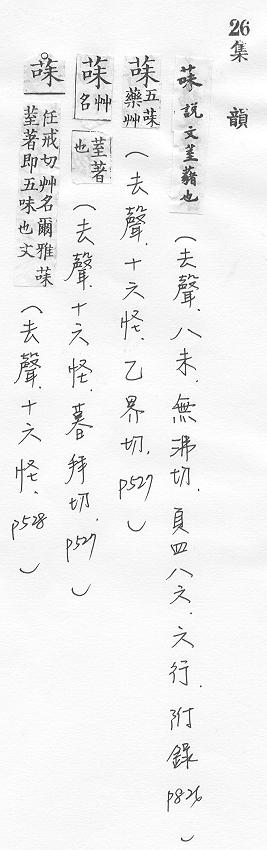 26 集韻
菋說文荎藸也(去聲.八未.無沸切.頁四八六.六行.附錄p826)
菋五菋藥艸(去聲.十六怪.乙界切.p527)
菋艸名荎著也(去聲.十六怪.暮拜切.p527)
菋任戒切艸名爾雅菋荎著即五味也文(去聲.十六怪.p528)